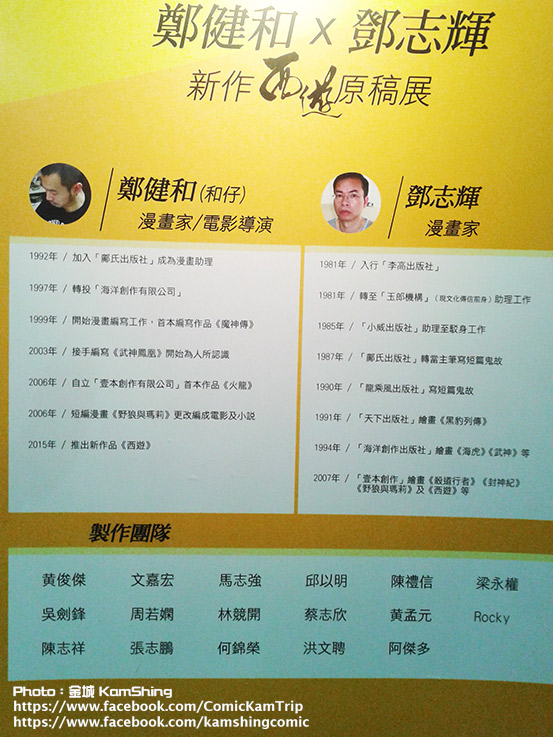 鄭健和 x 鄧志輝
新作西遊原稿展
鄭健和(和仔)
漫畫家/電影導演
1992年 / 加入「鄺氏出版社」成為漫畫助理
1997年 / 轉投「海洋創作有限公司」
1999年 / 開始漫畫編寫工作,首本編寫作品《魔神傳》
2003年 / 接手編寫《武神鳳凰》開始為人所認識
2006年 / 自立「壹本創作有限公司」首本作品《火龍》
2006年 / 短編漫畫《野狼與瑪莉》更改編成電影及小説
2015年 / 推出新作品《西遊》
鄧志輝
漫畫家
1981年 / 入行「李高出版社」
1981年 / 轉至「玉郎機構」(現文化傳信前身)助理工作
1985年 / 「小威出版社」助理至駁身工作
1987年 / 「鄺氏出版社」轉當主筆寫短篇鬼故
1990年 / 「龍乘風出版社」寫短篇鬼故
1991年 / 「天下出版社」繪畫《黑豹列傳》
1994年 / 「海洋創作出版社」繪畫《海虎》《武神》等
2007年 / 「壹本創作」繪畫《殺道行者》《封神紀》
《野狼與瑪莉》及《西遊》等
製作團隊
黃俊傑 文嘉宏 馬志強 邱以明 陳禮信 梁永權
吳劍鋒 周若嫻 林競開 蔡志欣 黃孟元 Rocky
陳志祥 張志鵬 何錦榮 洪文聘 阿傑多
Photo:金城 KamShing
https://www.facebook.com/ComicKamTrip
https://www.facebook.com/kamshingcomic